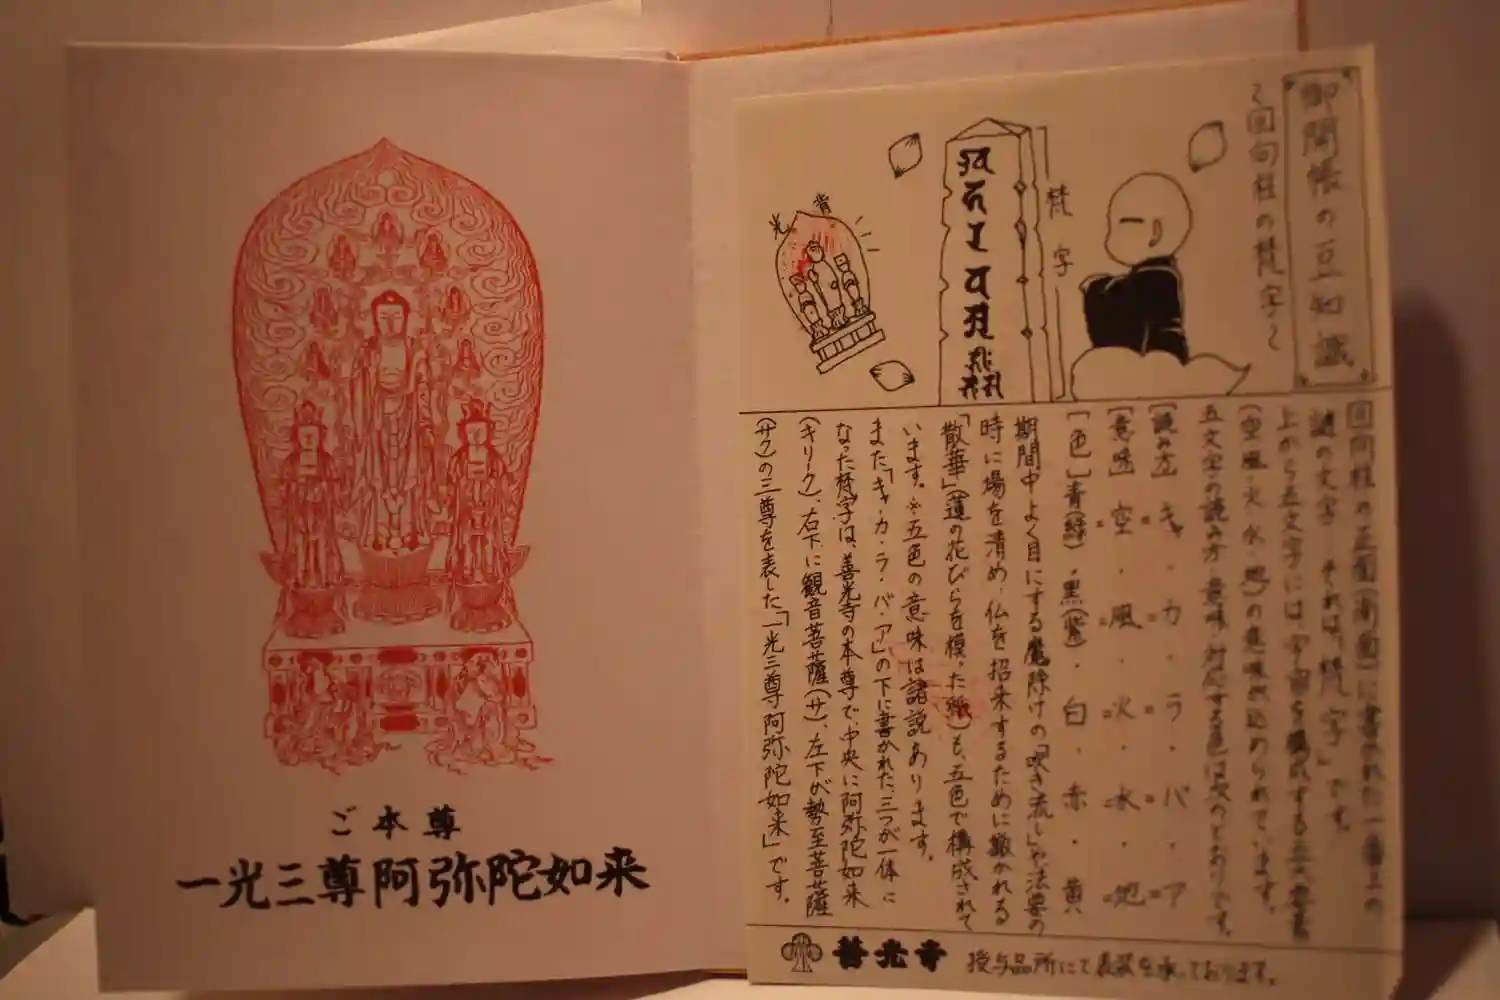 ご本尊
一光三尊阿弥陀如来
御開帳の豆知識
〜回向柱の梵字〜
梵字
光背
回向柱の正面(南面)に書かれた一番上の
謎の文字…それは、「梵字」です。
上から五文字には、宇宙を構成する五大要素
(空・風・火・水・地)の意味が込められています。
五文字の読み方・意味・対応する色は次のとおりです。
[読み方] キャ・カ・ラ・バ・ア
[意味] 空・風・火・水・地
[色] 青(緑)・黒(紫)・白・赤・黄
期間中よく目にする魔除けの「吹き流し」や法要の
時に場を清め、仏を招来するために撒かれる
「散華」(蓮の花びらを模った紙)も、五色で構成されて
います。※五色の意味は諸説あります。
また「キャ・カ・ラ・バ・ア」の下に書かれた、三つが一体に
なった梵字は、善光寺の本尊で、中央に阿弥陀如来
(キリーク)、右下に観音菩薩(サ)、左下が勢至菩薩
(サク)の三尊を表した「一光三尊阿弥陀如来」です。
善光寺 授与品所にて表装を承っております。